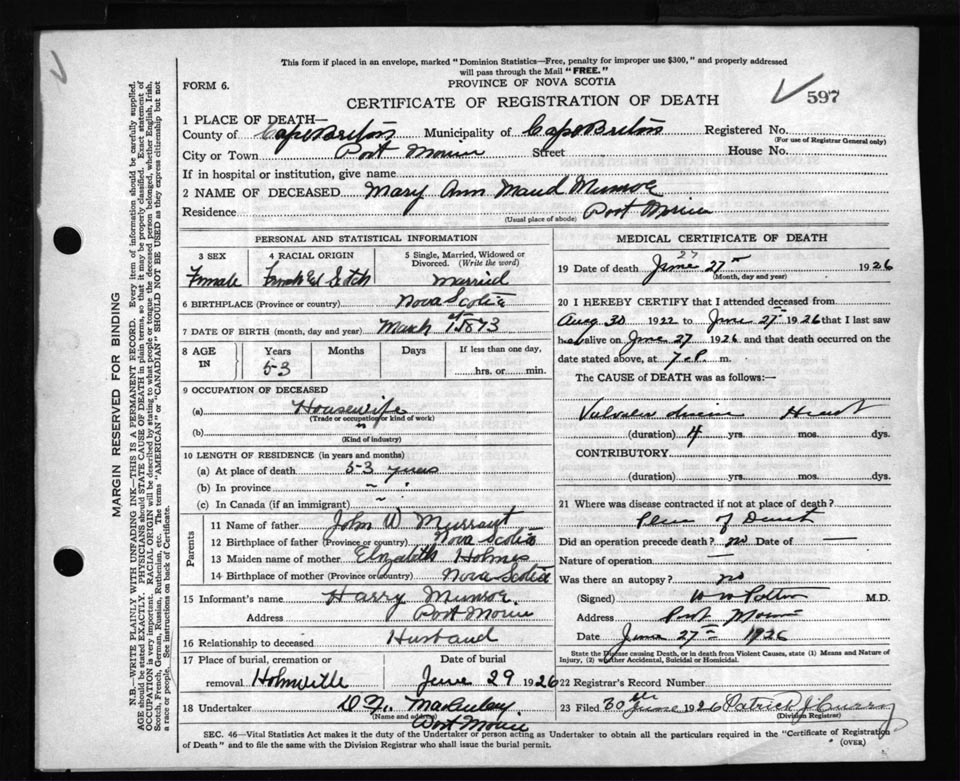 This form if placed in an envelope, marked "Dominion Statistics—Free, penalty for improper use $300," and properly addressed
will pass through the Mail "FREE."
FORM 6.
PROVINCE OF NOVA SCOTIA
CERTIFICATE OF REGISTRATION OF DEATH
597
1 PLACE OF DEATH—
County of Cape Breton Municipality of Cape Breton Registered No.
(For use of Registrar General only)
City or Town Port Morien Street House No.
If in hospital or institution, give name
2 NAME OF DECEASED Mary Ann Maud Munroe
Residence Port Morien
(Usual place of abode)
PERSONAL AND STATISTICAL INFORMATION
3 SEX 4 RACIAL ORIGIN 5 Single, Married, Widowed or
Divorced. (Write the word)
Female Scotch Married
6 BIRTHPLACE (Province or country) Nova Scotia
7 DATE OF BIRTH (month, day and year) March 1st 1873
8 AGE IN Years Months Days If less than one day,
53 hrs. or min.
9 OCCUPATION OF DECEASED
(a) Housewife
(Trade or occupation or kind of work)
(b)
(Kind of industry)
10 LENGTH OF RESIDENCE (in years and months)
(a) At place of death 53 years
(b) In province " "
(c) In Canada (if an immigrant) "
Parents
11 Name of father John W
12 Birthplace of father (Province or country) Nova Scotia
13 Maiden name of mother Elizabeth Holmes
14 Birthplace of mother (Province or country) Nova Scotia
15 Informant's name Harry Munroe
Address Port Morien
16 Relationship to deceased Husband
17 Place of burial, cremation or Date of burial
removal Homeville June 29 1926
18 Undertaker MacAulay
(Name and address) Port Morien
MEDICAL CERTIFICATE OF DEATH
27
19 Date of death June 27th 1926
(Month, day and year)
20 I HEREBY CERTIFY that I attended deceased from
Aug 30 1922 to June 27th 1926 that I last saw
her alive on June 27 1926 and that death occurred on the
date stated above, at 7 P. m.
The CAUSE of DEATH was as follows:—
Valvular disease Heart
(duration) 4 yrs. mos. dys.
CONTRIBUTORY
(duration) yrs. mos. dys.
21 Where was disease contracted if not at place of death?
Place of Death
Did an operation precede death? no Date of —
Nature of operation —
Was there an autopsy? no
(Signed) M.D.
Address Port Morien
Date June 27th 1926
State the Disease causing Death, or in death from Violent Causes, state (1) Means and Nature of
Injury, (2) whether Accidental, Suicidal or Homicidal.
22 Registrar's Record Number
23 Filed 30th June 1926 Patrick J Curry
(Division Registrar)
SEC. 46—Vital Statistics Act makes it the duty of the Undertaker or person acting as Undertaker to obtain all the particulars required in the "Certificate of Registration
of Death" and to file the same with the Division Registrar who shall issue the burial permit.
(OVER)
MARGIN RESERVED FOR BINDING
N.B.—WRITE PLAINLY WITH UNFADING INK—THIS IS A PERMANENT RECORD. Every item of information should be carefully supplied.
AGE should be stated EXACTLY. PHYSICIANS should STATE CAUSE OF DEATH in plain terms, so that it may be properly classified. Exact statement of
OCCUPATION is very important. RACIAL ORIGIN will be described by stating to what people or tongue the deceased person belonged, whether English, Irish,
Scotch, French, German, Russian, Ruthenian, etc. The terms "AMERICAN" or "CANADIAN" SHOULD NOT BE USED as they express citizenship but not
a race or people. See instructions on back of Certificate.